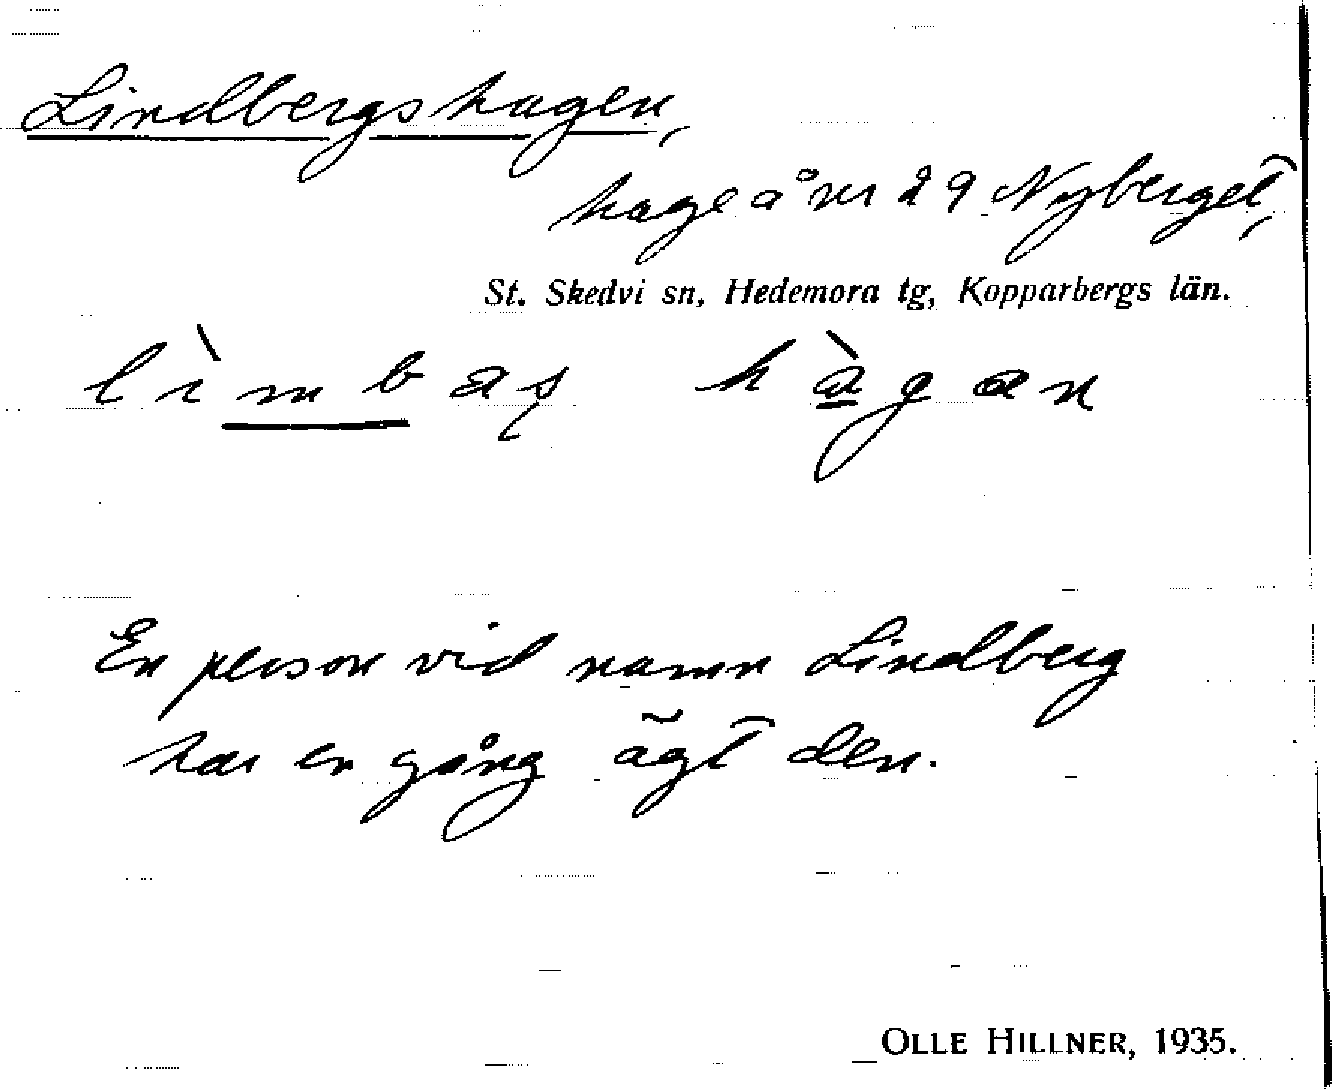 Lindbergshagen,
hage å nr 29 Nyberget,
St. Skedvi sn, Hedemora tg, Kopparbergs län.
lìmbaş hàgan
En person vid namn Lindberg
har en gång ägt den.
OLLE HILLNER, 1935.